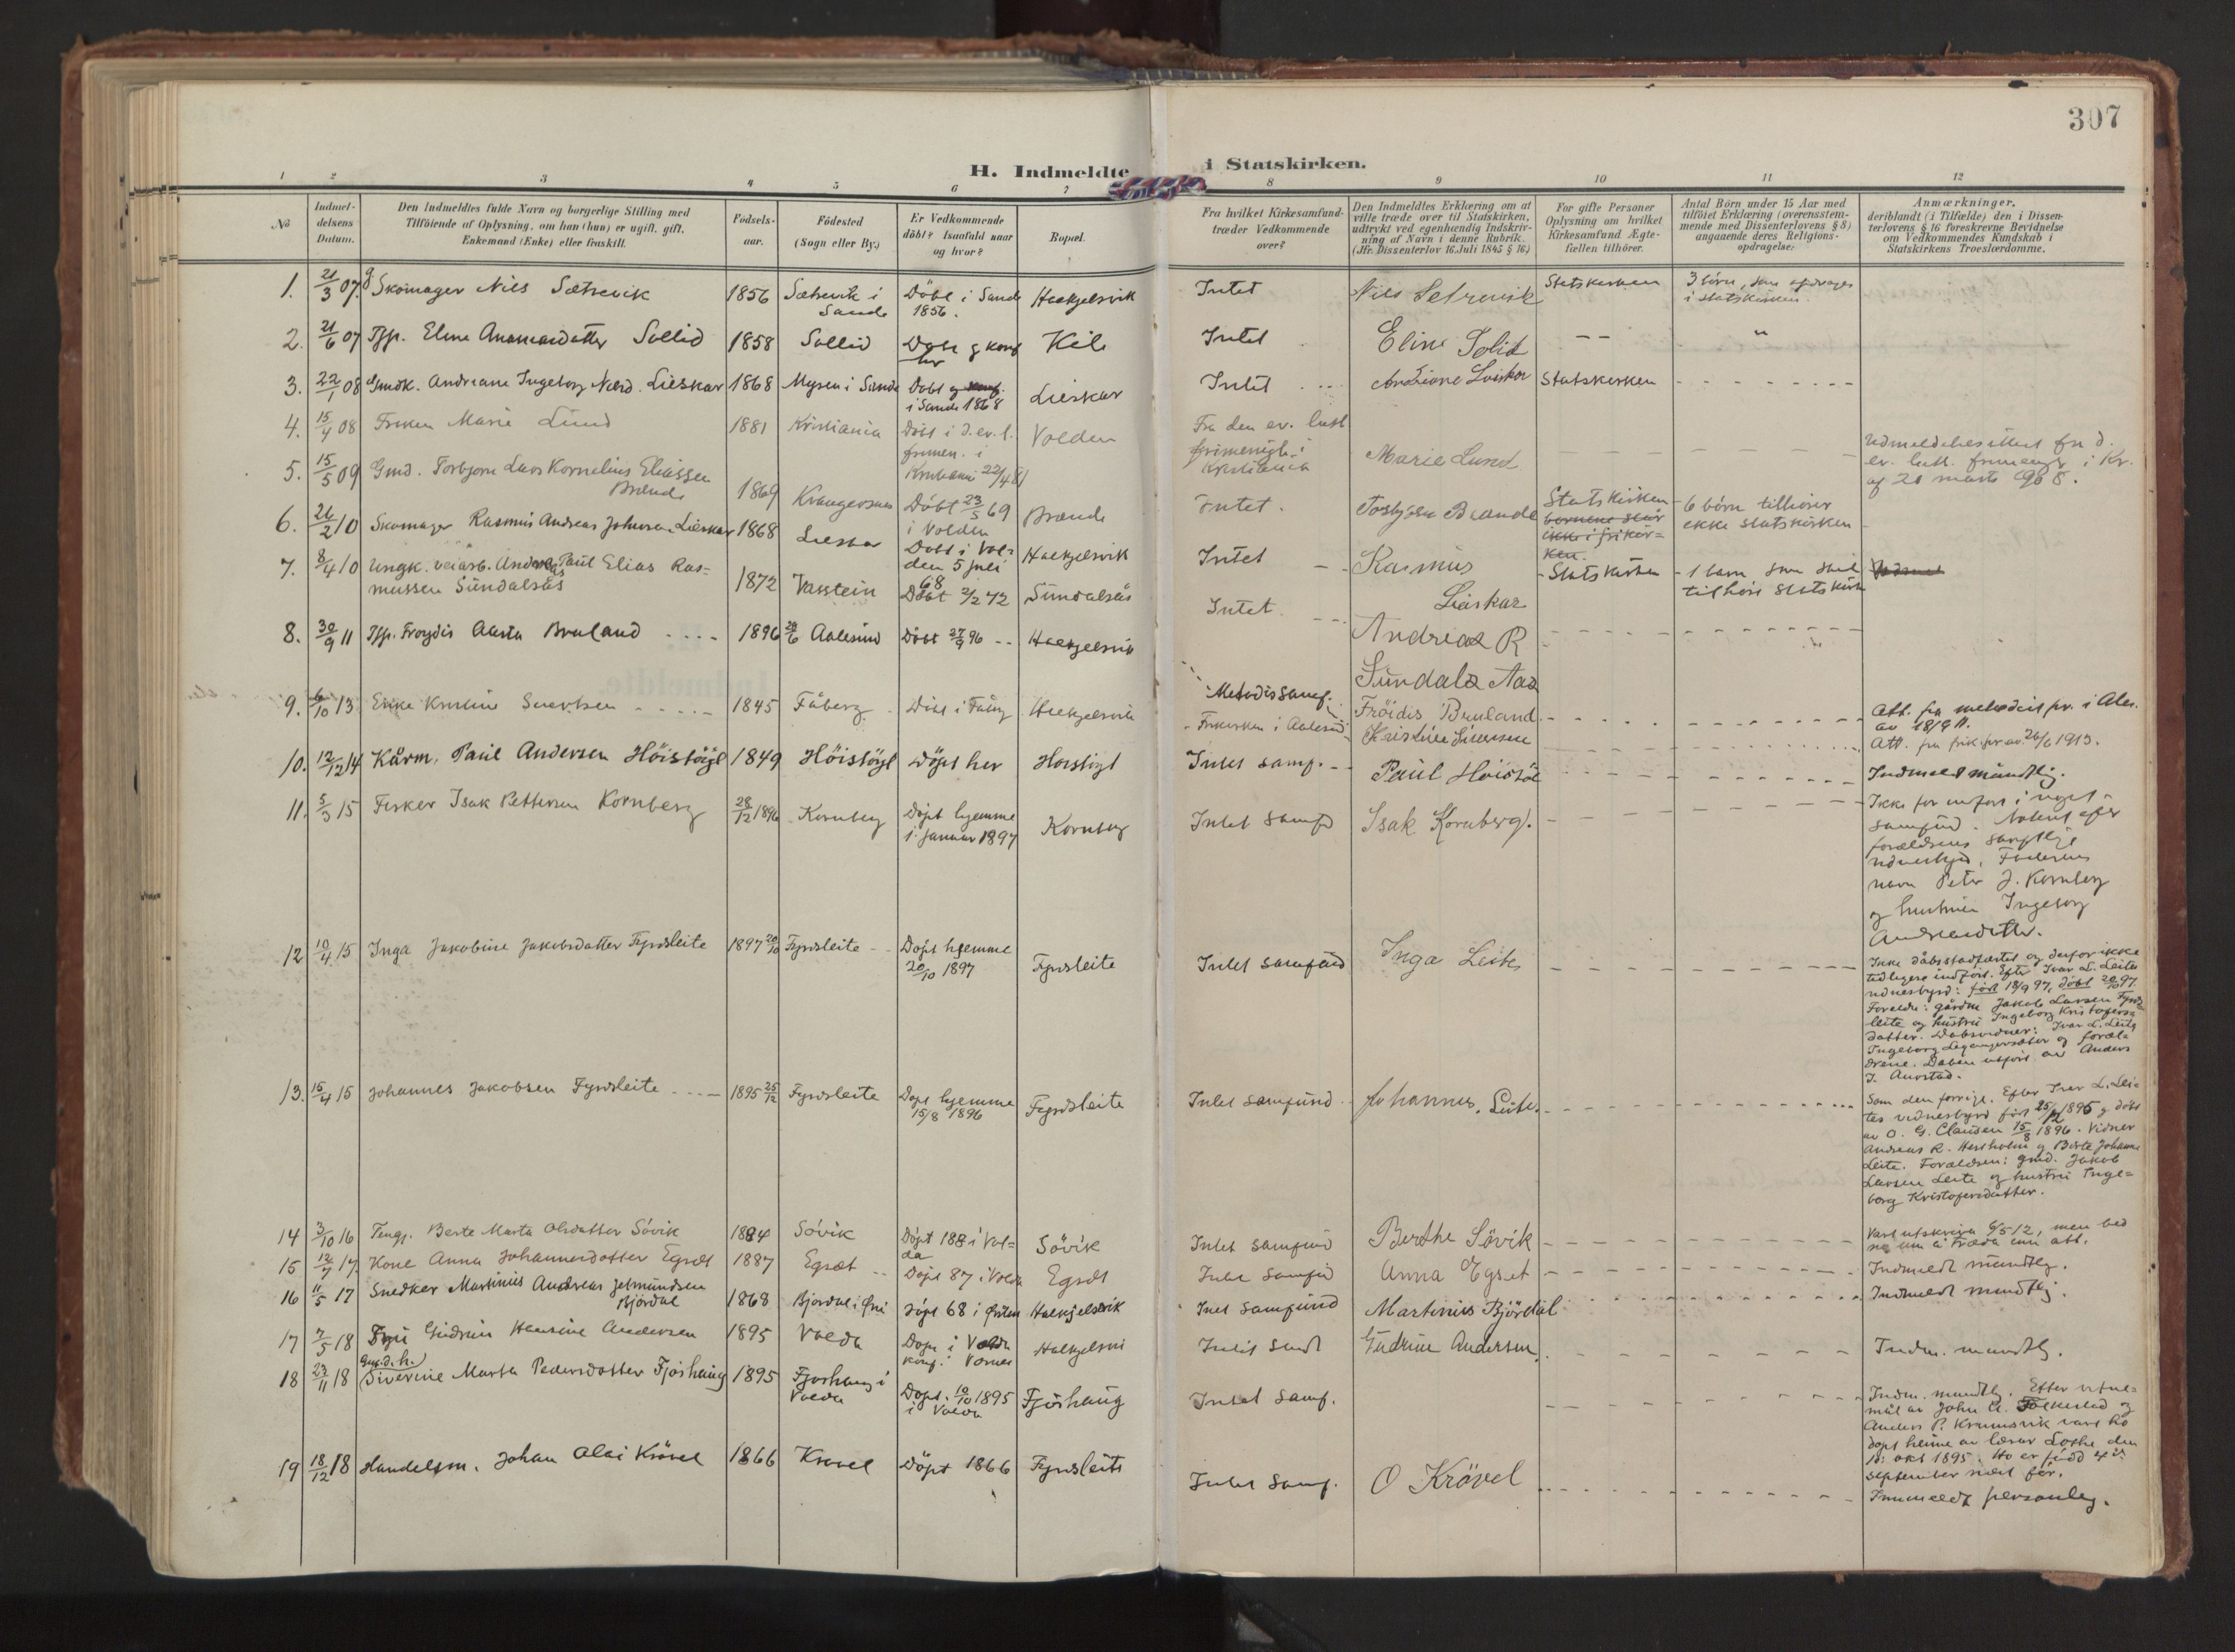 307
H. Indmeldte i Statskirken.
1 2 3 4 5 6 7 8 9 10 11 12
No
Indmel-
delsens
Datum.
Den Indmeldtes fulde Navn og borgerlige Stilling med
Tilföiende af Oplysning, om han (hun) er ugift, gift,
Enkemand (Enke) eller fraskilt.
Födsels-
aar.
Födested
(Sogn eller By.)
Er Vedkommende
döbt? Isaafald naar
og hvor?
Bopæl.
Fra hvilket Kirkesamfund-
træder Vedkommende
over?
Den Indmeldtes Erklæring om at
ville træde over til Statskirken,
udtrykt ved egenhændig Indskriv-
ning af Navn i denne Rubrik.
(Jfr. Dissenterlov 16. Juli 1845 § 16)
For gifte Personer
Oplysning om hvilket
Kirkesamfund Ægte-
fællen tilhörer.
Antal Börn under 15 Aar med
tilföiet Erklæring (overensstem-
mende med Dissenterlovens § 8)
angaaende deres Religions-
opdragelse.
Anmærkninger,
deriblandt (i Tilfælde) den i Dissen-
terlovens § 16 foreskrevne Bevidnelse
om Vedkommendes Kundskab i
Statskirkens Troeslærdomme.
1. 21/3 07. Skomager Nils Sætrevik 1856 Sætrevik i
Sande
Döbt i Sande
1856.
Haekjelsvik
Intet
Nils Setrevik
Statskirken
3 börn, som opdrages
i statskirken
2. 21/6 07 Eline Sollid 1858 Sollid Döbt og konf
her
Kile
Intet
Eline Solid
-- "
3. 22/1 08 Gmdk. Andreane Ingeborg Lieskar 1868 Myren i Sande Döbt og konf.
i Sande 1868
Lieskar
Intet
Andreane Leiskar
Statskirken
4. 15/4 08 Fröken Marie Lund 1881 Kristiania Döbt i d. ev. l.
frimen. i
22/4 81
Volden
Fra den ev. luth
frimenigh. i
Kristiania
Marie Lund
ev. luth. frimenigh i Kr.
af 21 marts 1908.
5. 15/5 09 Gmd. Torbjørn Lars Kornelius Eliassen
Brænde
1869 Krangernæs Döbt 23/5 69
i Volden
Brænde
Intet.
Torbjørn Brænde
Statskirken
6 börn tilhörer
ekke statskirken
6. 26/2 10 Skomager Rasmus Andreas Johnsen Lieskar 1868 Lieskar Döbt i Vol-
den 5 juli
68
Haekjelsvik
Intet
Rasmus
Leiskar
Statskirken
1 barn som skal
tilhöre statskirken
7. 8/4 10 Ungk. veiarb. Andreas Paul Elias Ras-
mussen Sundalsås
1872 Vasstein Döbt 2/2 72 Sundalsås
Intet.
Andreas R
Sundals Aas
8. 30/9 11 Frøydis Aasta Bruland 1896 Aalesund Döbt 27/9 96 Haekjelsvik
Metodistsamf.
Fröidis Bruland
Att. fra metodistpr. i Ales.
av 18/9 11.
9. 6/10 13 Enke Kristine Sivertsen 1845 Fåberg Döbt i Fåberg Haekjelsvik
Frikirken i Aalesund
Kristine Sivertsen
Att. fra frik.pr. av 26/6 1913.
10. 12/12 14 Kårm. Paul Andersen Höistöyl 1849 Höistöyl Döpt her Höistöyl
Intet samf.
Paul Höistöl
Indmeldt mündtlig.
11. 5/3 15 Fisker Isak Pettersen Kornberg 28/12 1896 Kornberg Döpt hjemme
i januar 1897
Kornberg
Intet samfd
Isak Kornberg.
Ikke før indfört i noget
samfund. Noteret efter
forældrenes samstlige
vidnesbyrd. Faderens
navn Peter J. Kornberg
og hustruen Ingeborg
Andreasdatter.
12 10/4 15 Inga Jakobine Jakobsdatter Fyrdsleite 1897 Fyrdsleite Döpt hjemme
20/10 1897
Fyrdsleite
Intet samfund
Inga Leite
Ikke dåbsstadfæstet og derfor ikke
tidligere indfört. Efter Ivar L. Leites
vidnesbyrd: född 18/9 97, döbt 20/10 97.
Foreldre: gårdm. Jakob Larsen Fyrds-
leite og hustru Ingeborg Kristofers-
datter. Dåbsvidner: Ivar L. Leite
og foræl-
drene. Dåben utfört av Anders
J. Aurstad.
13. 15/4 15 Johannes Jakobsen Fyrdsleite 1895 25/12 Fyrdsleite Döpt hjemme
15/8 1896
Fyrdsleite
Intet samfund
Johannes. Leite.
Som den forrige. Efter Iver L. Lei-
tes vidnesbyrd född 25/12 1895 og döbt
av O. G. Clausen 15/8 1896. Vidner
Andreas R. og Berte Johanne
Leite. Forældren: gmd. Jakob
Larsen Leite og hustru Inge-
borg Kristofersdatter.
14 3/10 16 Berte Marta Olsdatter Sövik 1884 Sövik Döpt 188 i Vol-
da
Sövik
Intet samfund
Berthe Sövik
Vart utskriva 6/5 12, men bed
15 12/7 17 Kone Anna Johannesdotter Egset 1887 Egset Döpt 87 i Volda Egset
Intet Samfd
Anna Egset
Indmeldt mündtlig.
16 11/5 17 Snedker Martinus Andreas
Björdal
1868 Bjordal i Örst Döpt 68 i Örsten Haekjelsvik
Intet samfund
Martinus Björdal
Indmeldt mundtlig.
17 7/5 18 Gudrun Hansine Andersen 1895 Volda Döpt i Volda
konf.
Haekjelsvik
Gudrun Andersen
Indm. mundtlig.
18 23/11 18 Siverine Marta Pedersdotter Fjöshaug 1895 Fjöshaug i
Volda
Döpt 10/10 1895
i Volda
Fjöshaug
Intet Samf.
Indm. mundtlig. Efter vitne-
mål av John A. Folkestad og
Anders P. vart ho
döpt heime av lærar Lothe den
10: okt 1895. Ho er född i
september næst för.
19 18/12 18 Handelsm. Johan Olai Krövel 1866 Krövel Döpt 1866 Fyrdsleite
Intet Samf.
O Krövel
Innmeldt personleg.